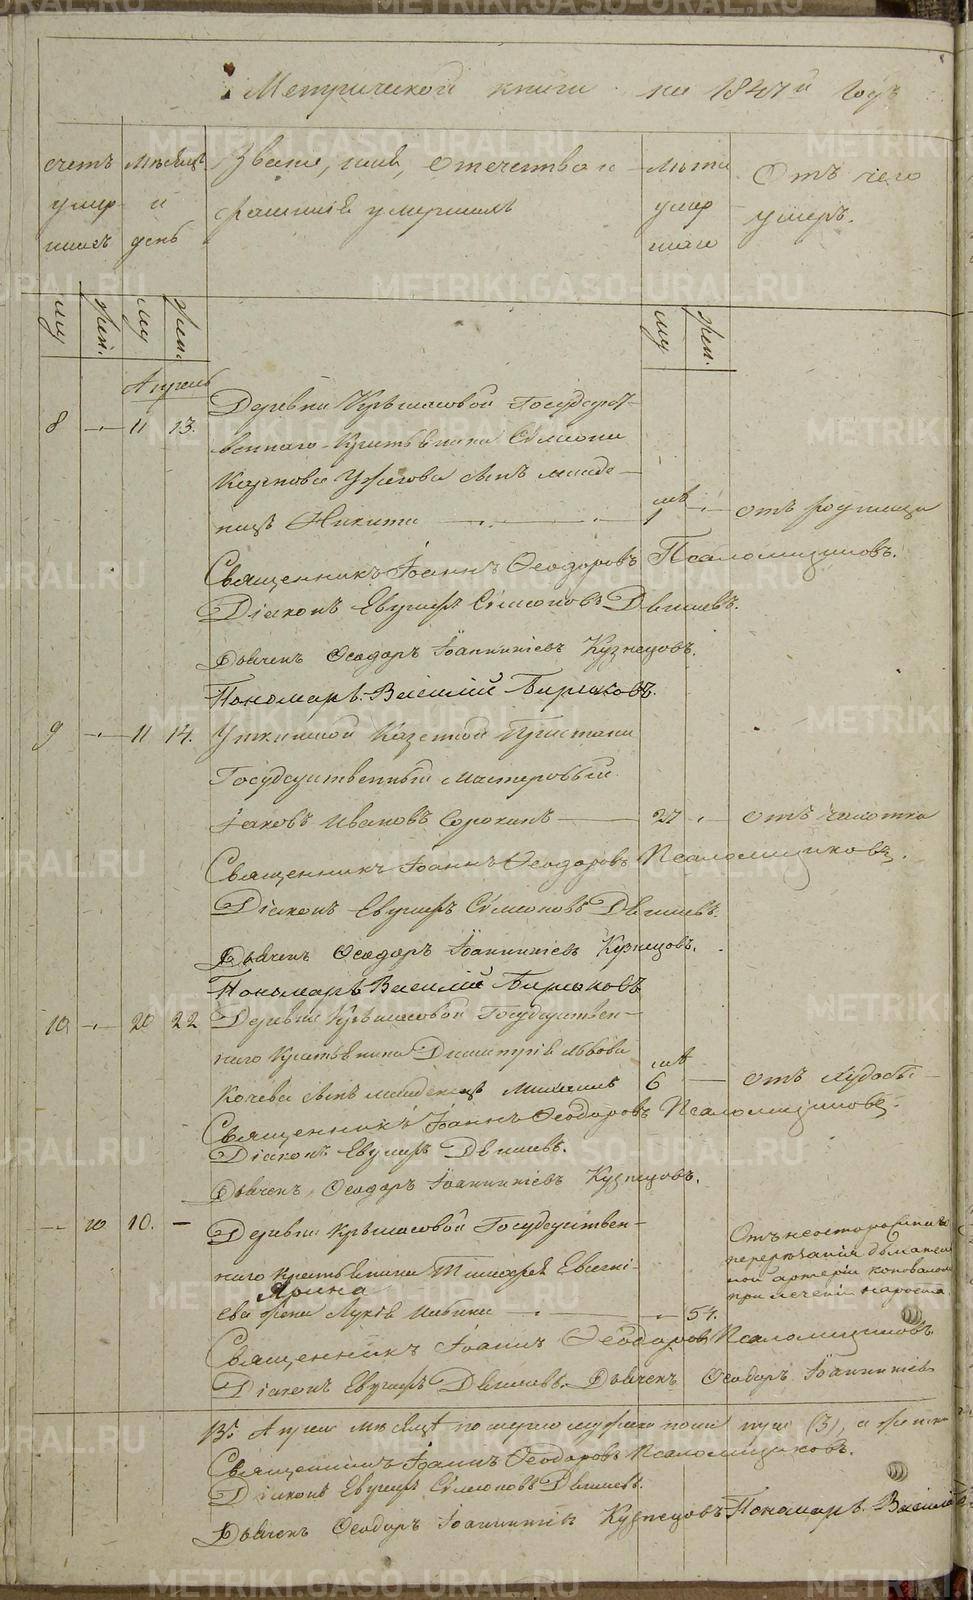 Метрической книги на 1847й годъ
счетъ умершихъ
мѣсяцъ и день
Званіе, имя, отечество и фамилія умершихъ
лѣта умершаго
Отъ чего умеръ.
му
жен.
му
жен.
му
жен.
Апрель
8 11 13. Деревни Государст-
веннаго Крестьянина Симеона
Карпова сынъ младе-
нецъ Никита 1 отъ родимца
Священникъ Іоаннъ Ѳеодоровъ Псаломщиковъ.
Діаконъ Симеоновъ
Дьячекъ Ѳеодоръ Іоанникіевъ Кузнецовъ.
Пономарь Василій Бирюковъ.
9 11 14. Уткинской Казенной Пристани
Государственный мастеровый
Іаковъ Ивановъ Сорокинъ 27 отъ чахотки
Священникъ Іоаннъ Ѳеодоровъ Псаломщиковъ.
Діаконъ Симеоновъ
Дьячекъ Ѳеодоръ Іоанникіевъ Кузнецовъ.
Пономарь Василій Бирюковъ
10 20 22 Деревни Государствен-
наго Крестьянина Димитрія Львова
Кочева сынъ младенецъ 6 отъ худобы
Священникъ Іоаннъ Ѳеодоровъ Псаломщиковъ.
Діаконъ
Дьячекъ Ѳеодоръ Іоанникіевъ Кузнецовъ.
10 10. Деревни Государствен-
наго крестьянина Тимофея Евгені-
Ярина
ева жена 54.
Отъ неосторожнаго
перерѣзанія
артеріи коноваломъ
при леченіи нароста
Священникъ Іоаннъ Ѳеодоровъ Псаломщиковъ
Діаконъ Дьячекъ Ѳеодоръ Іоанникіевъ
Въ Апрелѣ мѣсяцѣ померло мужеска пола три (3), а женска
Священникъ Іоаннъ Ѳеодоровъ Псаломщиковъ.
Діаконъ Симеоновъ
Дьячекъ Ѳеодоръ Іоанникіевъ Кузнецовъ Пономарь Василій
METRIKI.GASO-URAL.RU